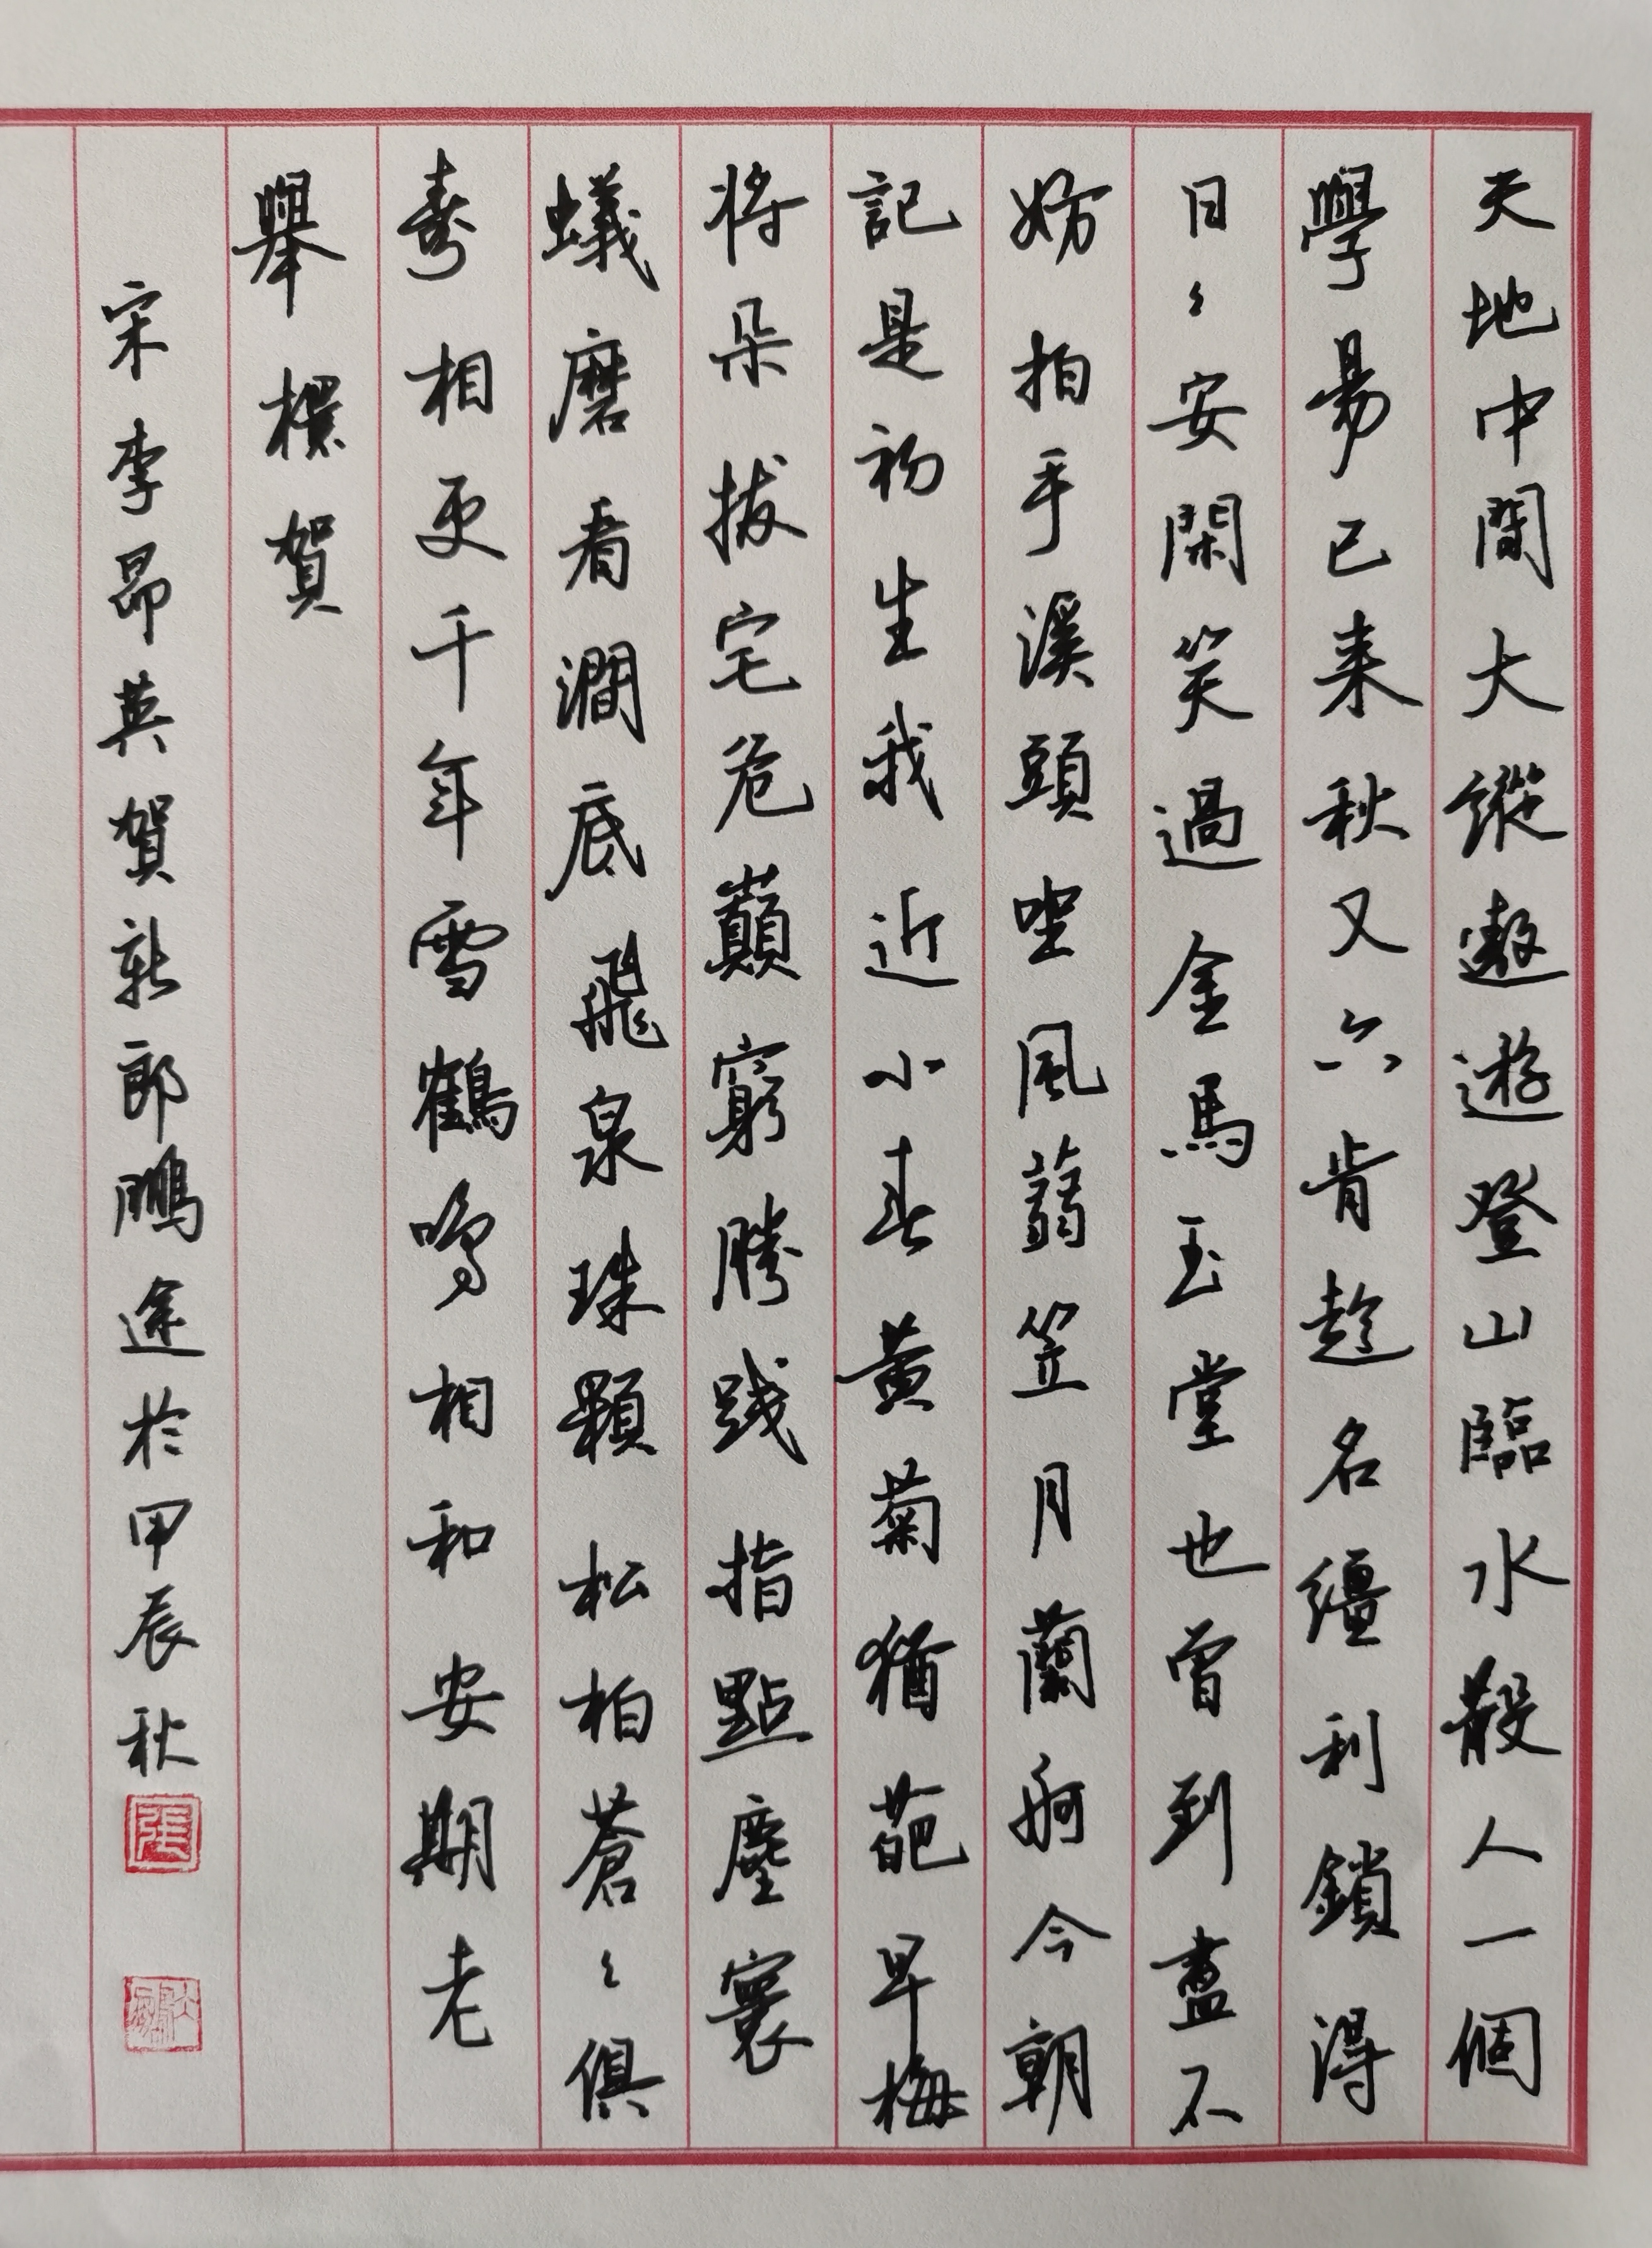 天地中間大縱遨遊登山臨水散人一個
學易已来秋又六肯趁名繮利鎖得
日〻安閑笑過金馬玉堂也曾到盡不
妨拍手溪頭坐風蒻笠月蘭舸今朝
記是初生我近小春黃菊猶葩早梅
將朵拔宅危巔窮勝践指點塵寰
蟻磨看澗底飛泉珠顆松柏蒼〻俱
寿相更千年雪鶴鳴相和安期老
舉賀
宋李昂英賀新郎鵬途於甲辰秋
張